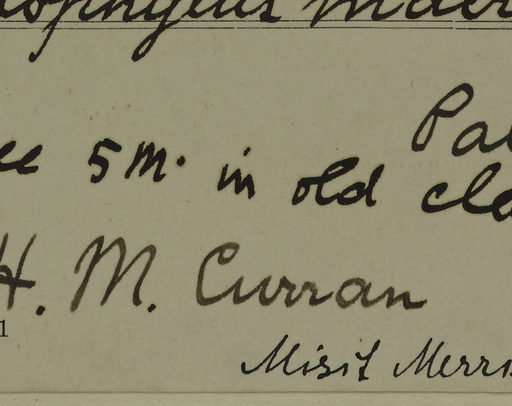 Pal
ee 5 m. in old cle
H. M. Curran
1
Misit Merri